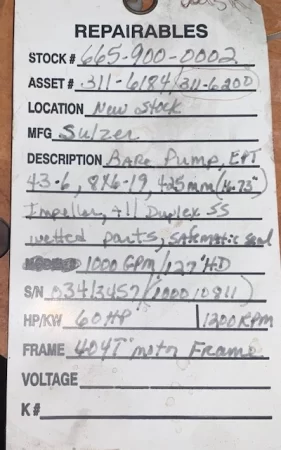 REPAIRABLES
STOCK # 665-900-0002
ASSET # 311-6184, 311-6200
LOCATION New Stock
MFG Sulzer
DESCRIPTION BARE Pump, EPT
43-6, 8X6-19, 425mm (16.73")
Impeller, All Duplex SS
wetted parts, Safematic seal
1000 GPM / 127' HD
S/N 03413457 (100010811)
HP/KW 60HP 1200 RPM
FRAME 404T motor Frame
VOLTAGE
K #